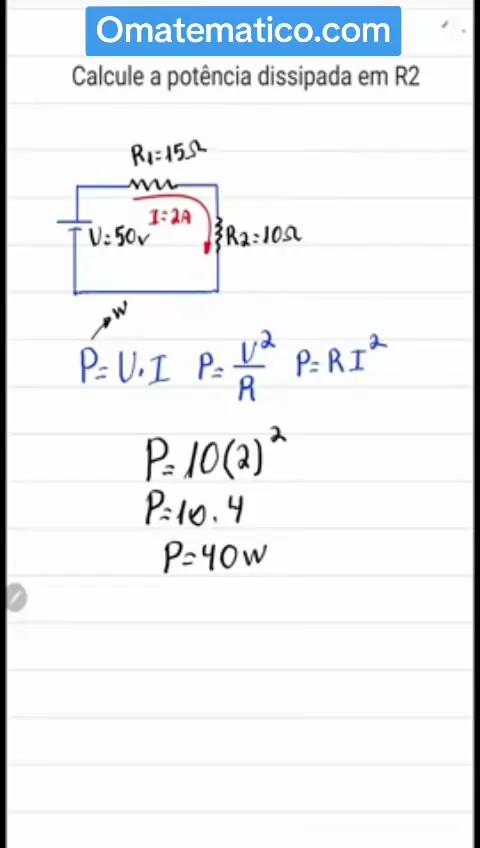 Omatematico.com
Calcule a potência dissipada em R2
R1=15Ω
I=2A
U=50v
R2=10Ω
w
P=U.I P=U²/R P=RI²
P=10(2)²
P=10.4
P=40w